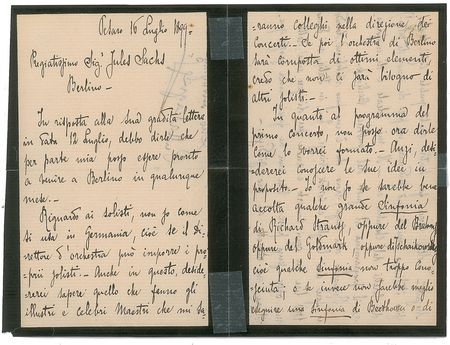 Pesaro 16 Luglio 1899.-
Pregiatissimo Sig.r Jules Sachs
Berlino -
In risposta alla sua gradita lettera
in data 12 Luglio, debbo dirle che
per parte mia posso essere pronto
a venire a Berlino in qualunque
mese. -
Riguardo ai solisti, non so come
si usa in Germania, cioè se il di-
rettore d'orchestra può imporre i pro-
prii solisti - Anche in questo, deside-
rerei sapere quello che fanno gli
illustri e celebri Maestri che mi sa-
ranno colleghi nella direzione dei
concerti. - Se poi l'orchestra di Berlino
sarà composta di ottimi elementi,
credo che non ci sarà bisogno di
altri solisti. -
In quanto al programma del
primo concerto, non posso ora dirle
come lo vorrei formato. - Anzi, desi-
dererei conoscere le sue idee in
proposito. - Io non so se sarebbe bene
accolta qualche grande Sinfonia
di Richard Strauss, oppure del Brahms
oppure del Goldmark oppure di Tschaikowsky
cioè qualche Sinfonia non troppo cono-
sciuta, o se invece non sarebbe meglio
eseguire una Sinfonia di Beethoven o di